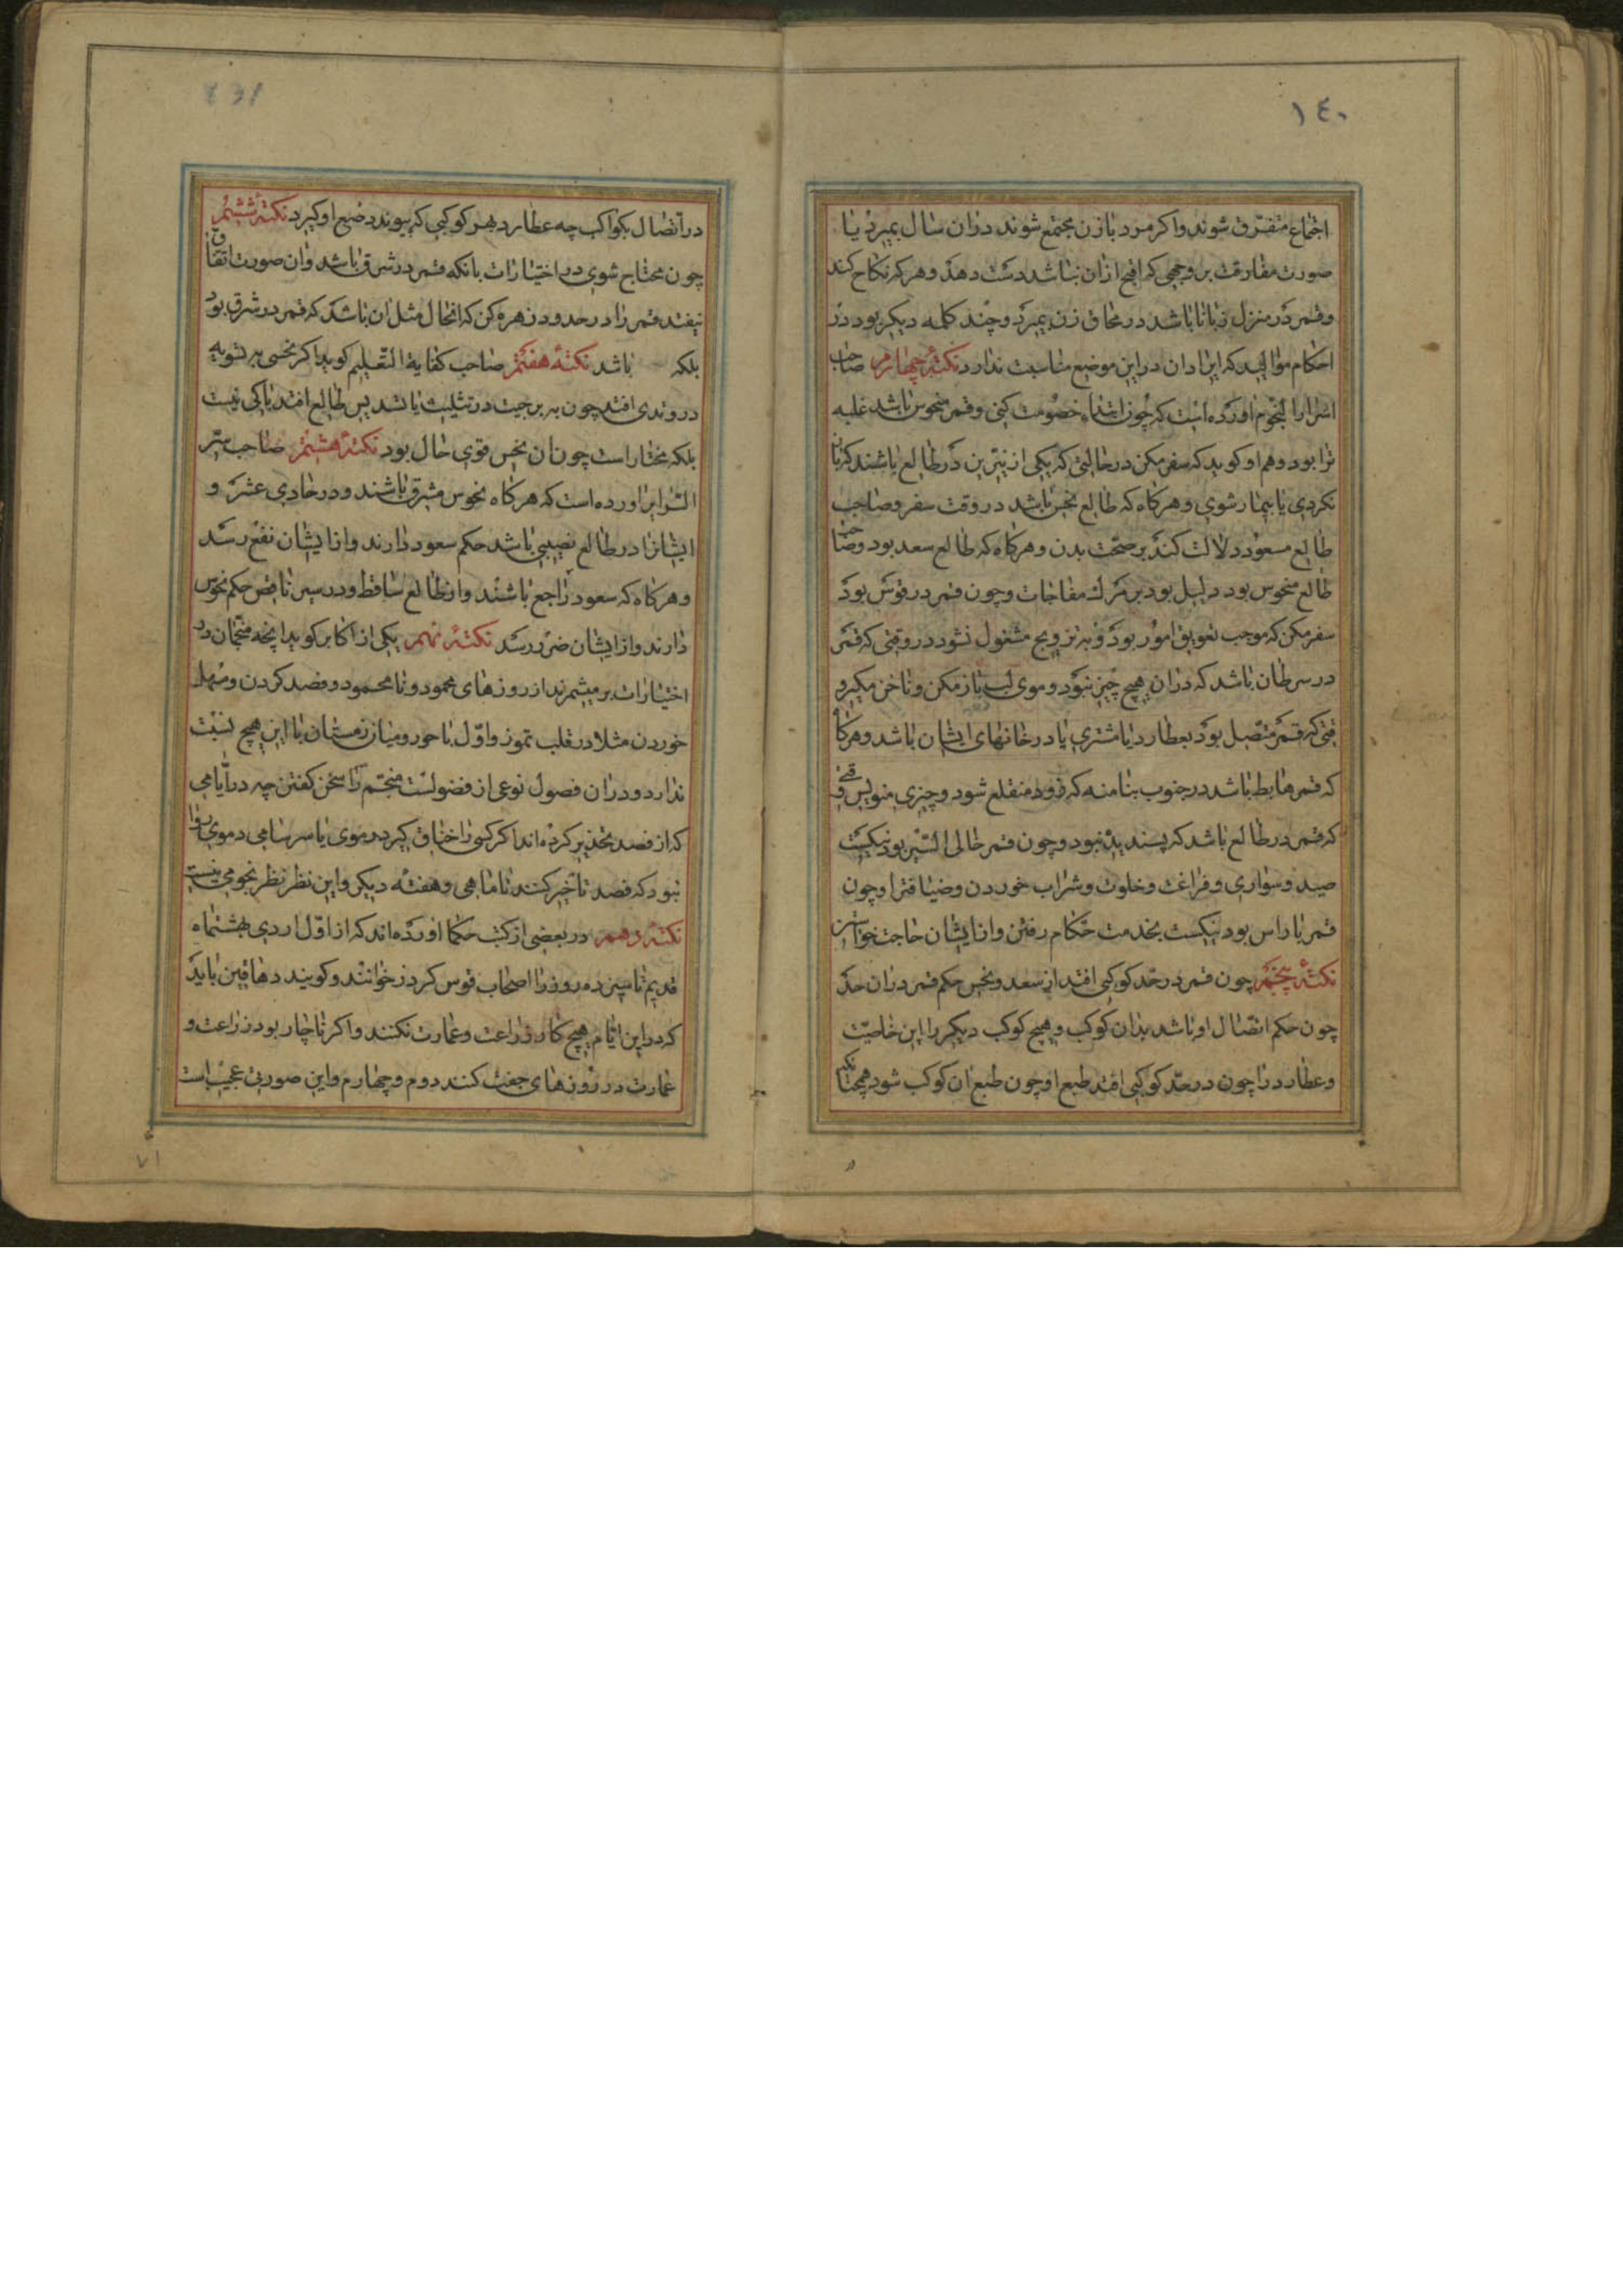 ١٤٠
اجتماع متفرق شوند واکر مرد با زن مجتمع شوند دران سال بمیرد یا
صورت مفارقت بر وجهی که اقبح ازان نباشد دست دهد وهر که نکاح کند
وقمر در منزل زبانا باشد در محاق زن بمیرد وچند کلمه دیکر بود در
احکام موالید که ایراد ان در این موضع مناسبت ندارد نکتهٔ چهارم صاحب
اسرار النجوم اورده است که چون ابتداء خصومت کنی وقمر منحوس باشد غلبه
ترا بود وهم او کوید که سفر مکن در حالتی که یکی از نیرین در طالع باشند که باز
نکردی یا بیمار شوی وهرکاه که طالع نحس باشد در وقت سفر وصاحب
طالع مسعود دلالت کند بر صحت بدن وهرکاه که طالع سعد بود وصاحب
طالع منحوس بود دلیل بود بر مرك مفاجات وچون قمر در قوس بود
سفر مکن که موجب تعویق امور بود وبه تزویج مشغول نشود در وقتی که قمر
در سرطان باشد که دران هیچ چیز نبود وموی لب باز مکن وناخن مکیر و
قتی که قمر متصل بود بعطارد یا مشتری یا در خانهای ایشان باشد وهرکاه
که قمر هابط باشد در جنوب بنا منه که زود منقلع شود وچیزی منویس وقتی
که قمر در طالع باشد که پسندیده نبود وچون قمر خالی السیر بود نیکست
صید وسواری وفراغت وخلوت وشراب خوردن وضیافترا وچون
قمر با راس بود نیکست بخدمت حکام رفتن واز ایشان حاجت خواستن
نکتهٔ پنجم چون قمر در حد کوکبی افتد از سعد ونحس حکم قمر دران حد
چون حکم اتصال او باشد بدان کوکب وهیچ کوکب دیکر را این خاصیت
وعطارد را چون در حد کوکبی افتد طبع او چون طبع ان کوکب شود همچنانکه
در اتصال بکواکب چه عطارد بهر کوکبی که پیوندد طبع او کیرد نکتهٔ ششم
چون محتاج شوی در اختیارات بانکه قمر در شرق باشد وان صورت اتفاق
نیفتد قمر را در حدود زهره کن که انحال مثل ان باشد که قمر در شرق بود
بلکه باشد نکتهٔ هفتم صاحب کفایة التعلیم کوید اکر نحسی بر تسویه
در وتدی افتد چون به برجیت در تثلیث یا تسدیس طالع افتد باکی نیست
بلکه مختار است چون ان نحس قوی حال بود نکتهٔ هشتم صاحب سر
السرایر اورده است که هرکاه نحوس مشرق باشند ودر حادی عشر و
ایشانرا در طالع نصیبی باشد حکم سعود دارند واز ایشان نفع رسد
وهرکاه که سعود راجع باشند واز طالع ساقط ودر سیر ناقص حکم نحوس
دارند واز ایشان ضرر رسد نکتهٔ نهم یکی از اکابر کوید انچه منجمان در
اختیارات بر میشمرند از روزهای محمود ونامحمود وفصد کردن ومسهل
خوردن مثلا در قلب تموز واول باحور ومیان زمستان با این هیچ نسبت
ندارد ودران فصول نوعی از فضولست منجم را سخن کفتن چه در ایامی
که از فصد تحذیر کرده اند اکر کسی را خناق کیرد دموی یا سرسامی دموی روا
نبود که فصد تاخیر کنند تا ماهی وهفتهٔ دیکر واین نظر نظر نجومی نیست
نکتهٔ دهم در بعضی از کتب حکما اورده اند که از اول اردی بهشتماه
قدیم تا سیزده روز را اصحاب قوس کردز خوانند وکویند دهاقین باید
که در این ایام هیچ کار زراعت وعمارت نکنند واکر ناچار بود زراعت و
عمارت در روزهای جفت کنند دوم وچهارم واین صورتی عجیب است
٧١